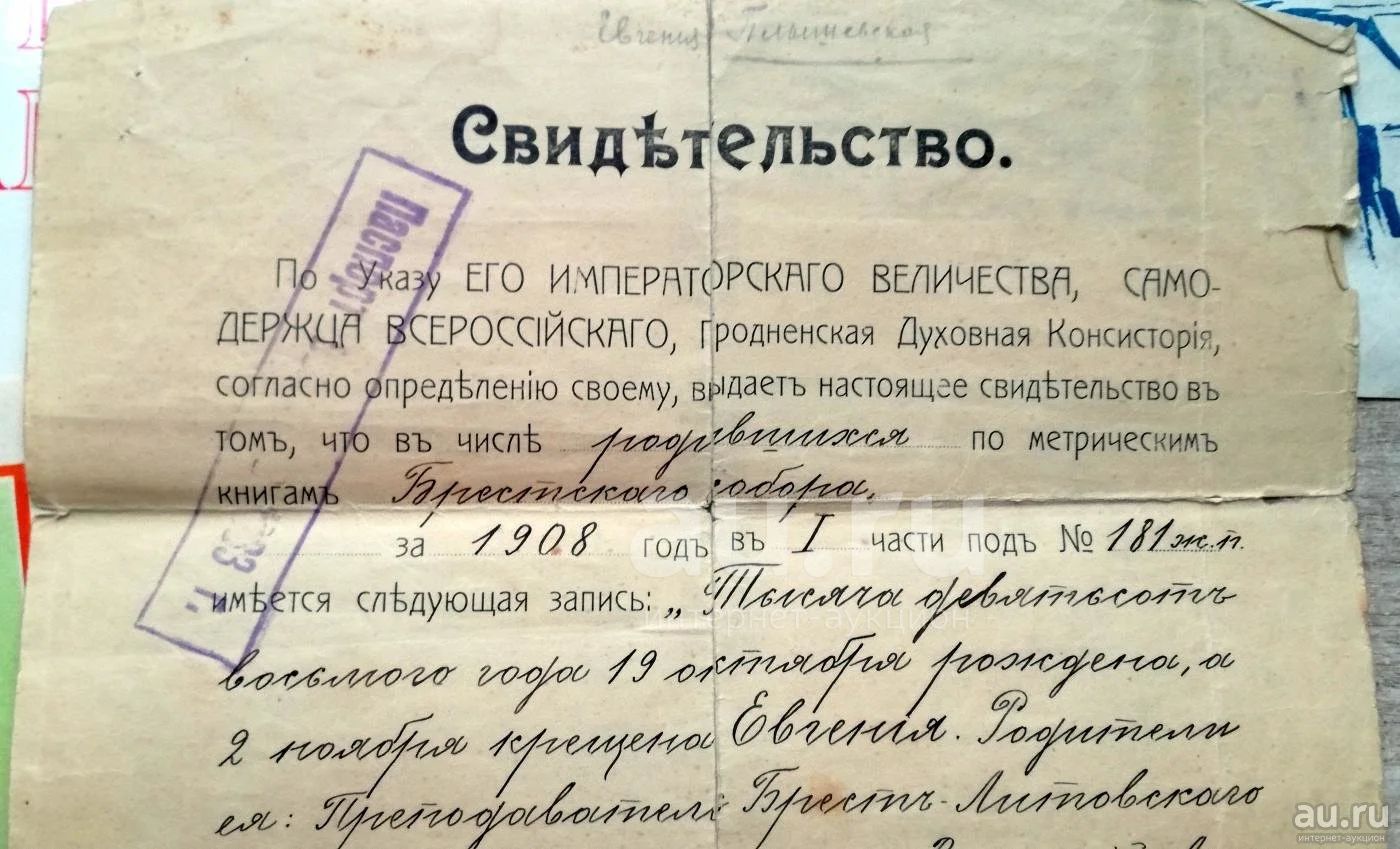 Евгения
Свидѣтельство.
Паспорт
По Указу ЕГО ИМПЕРАТОРСКАГО ВЕЛИЧЕСТВА, САМО-
ДЕРЖЦА ВСЕРОССІЙСКАГО, Гродненская Духовная Консисторія,
согласно опредѣленію своему, выдаетъ настоящее свидѣтельство въ
томъ, что въ числѣ родившихся по метрическимъ
книгамъ Брестскаго собора,
за 1908 годъ въ I части подъ № 181 ж.п.
имѣется слѣдующая запись: „Тысяча девятьсотъ
восьмого года 19 октября рождена, а
2 ноября крещена Евгения. Родители
ея: Преподаватель Брестъ-Литовскаго
au.ru
интернет-аукцион
au.ru
интернет-аукцион